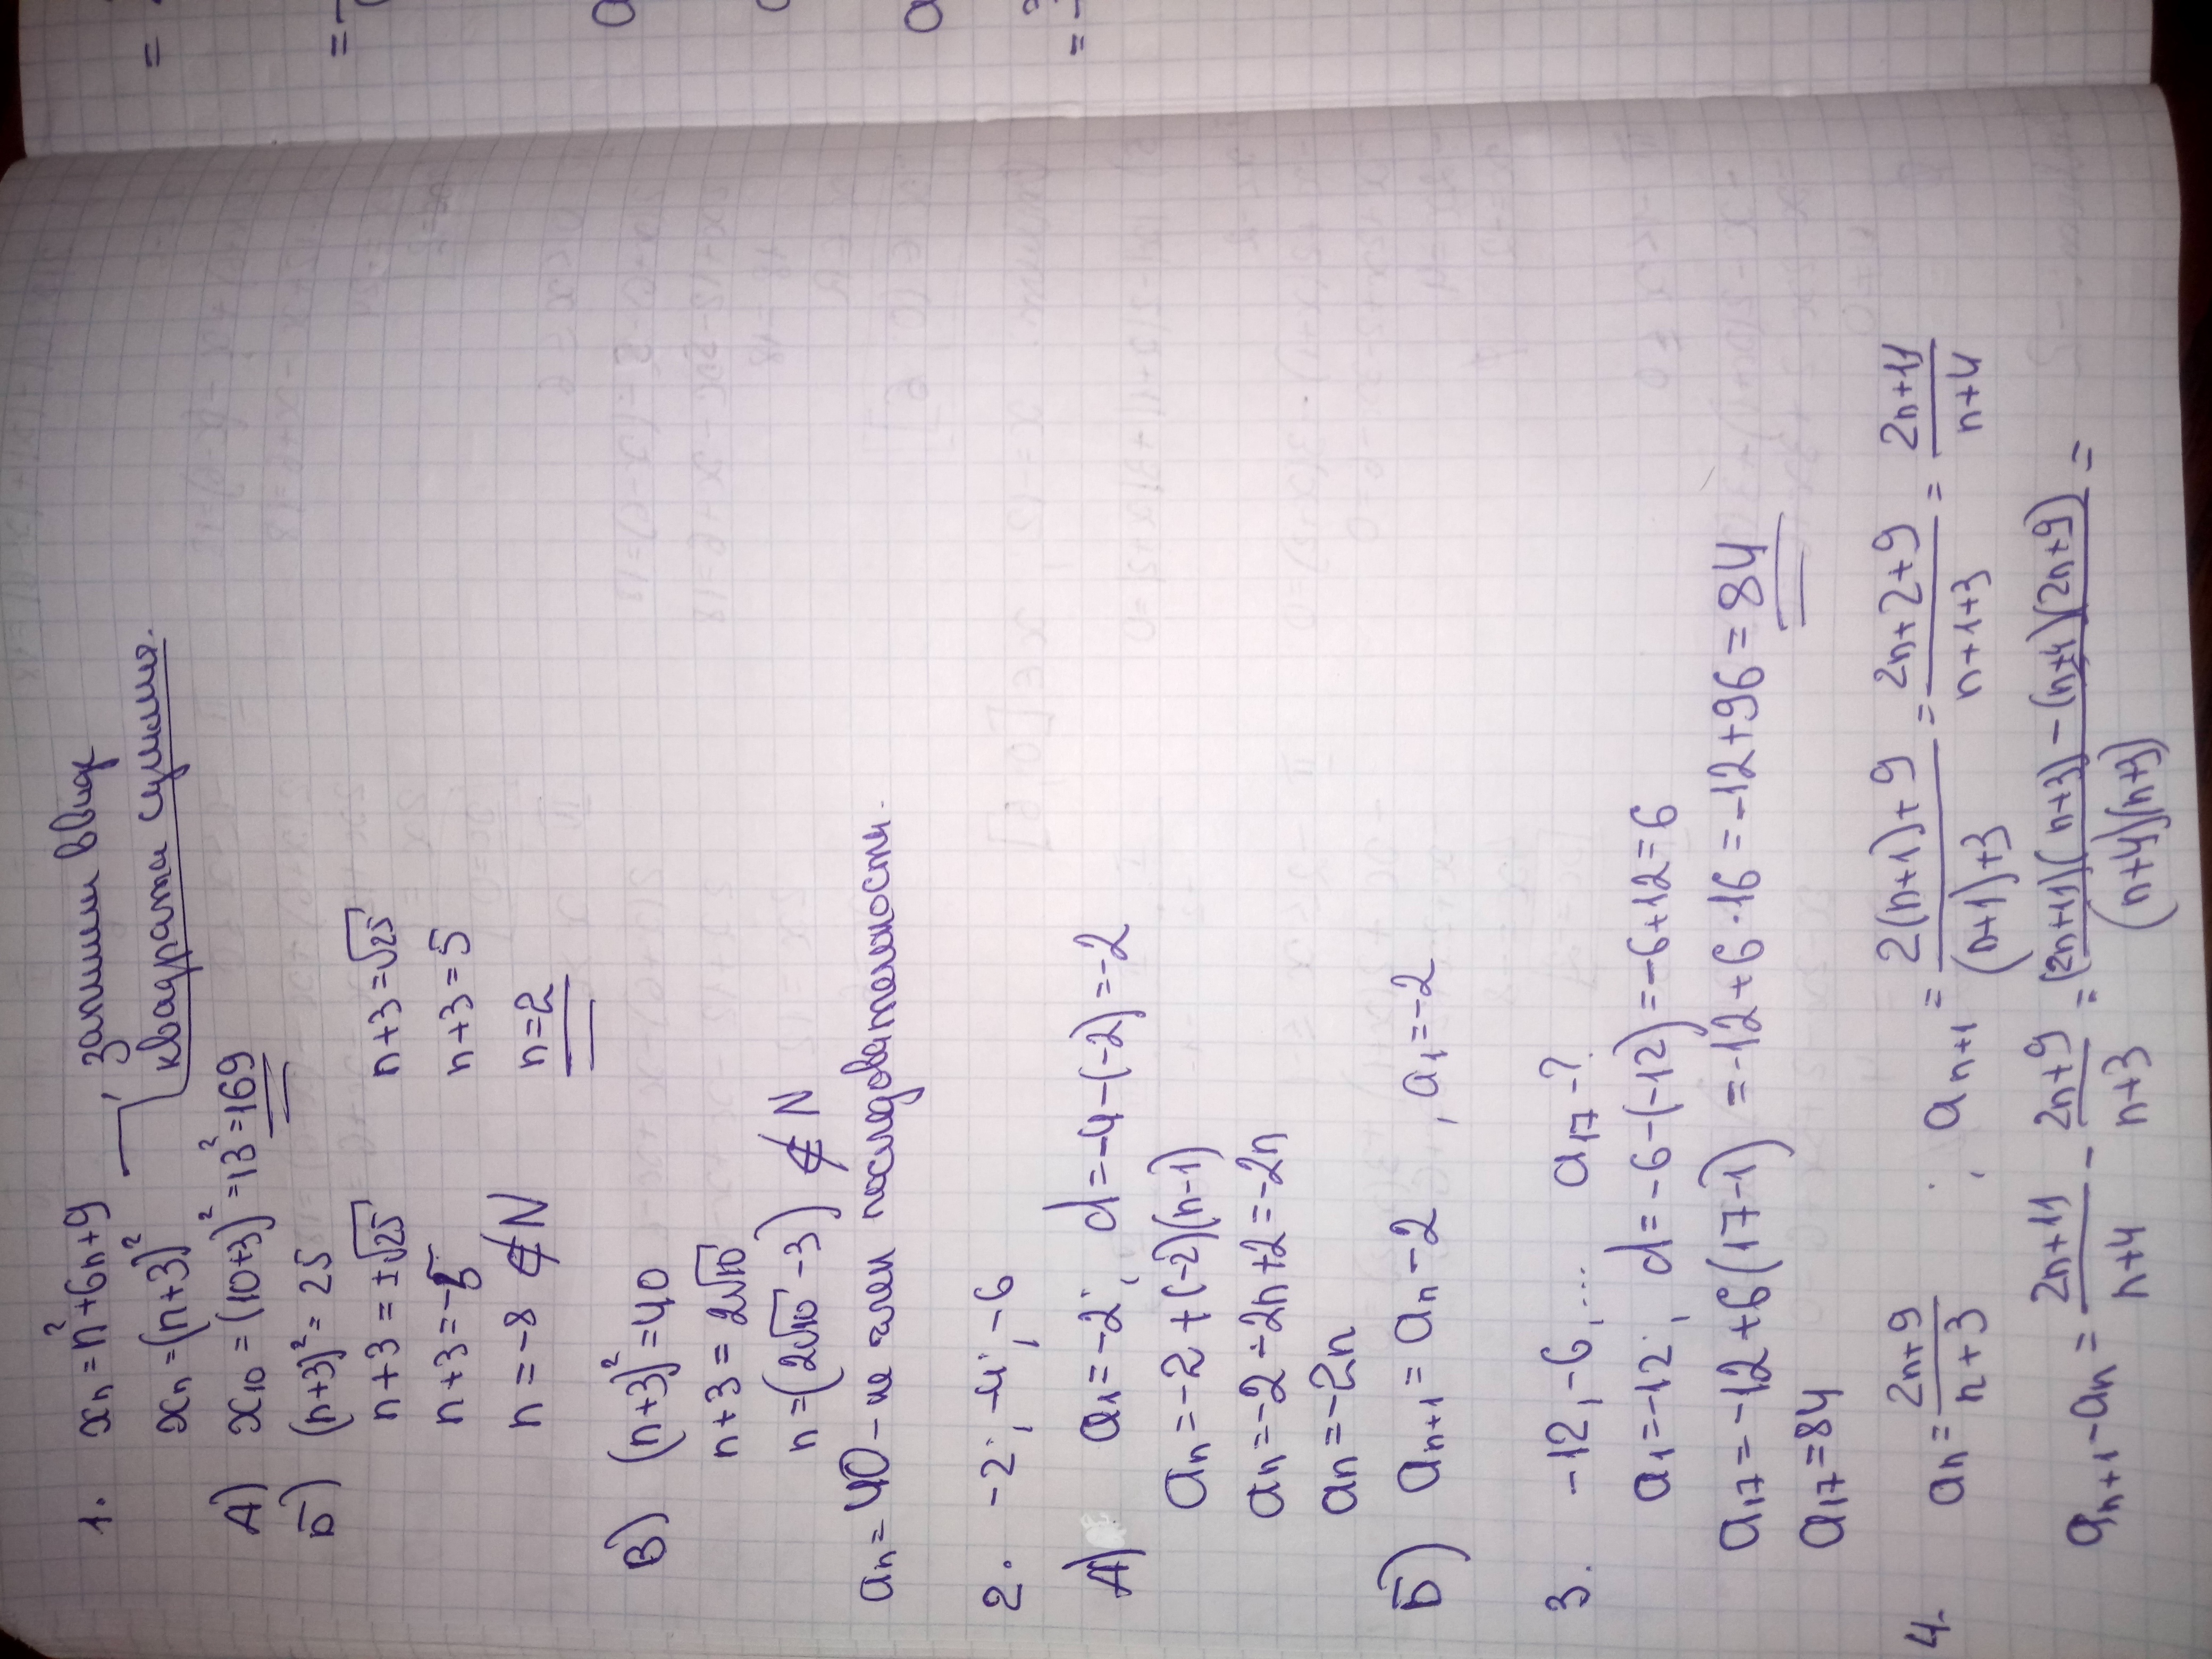 1. xₙ = n² + 6n + 9 , запишем ввиде
xₙ = (n+3)² квадрата суммы.
А) x₁₀ = (10+3)² = 13² = 169
Б) (n+3)² = 25
n+3 = ±√25 n+3 = √25
n+3 = -5 n+3 = 5
n = -8 ∉ N n = 2
В) (n+3)² = 40
n+3 = 2√10
n = (2√10 - 3) ∉ N
aₙ = 40 - не член последовательности.
2. -2; -4; -6
А) a₁ = -2; d = -4-(-2) = -2
aₙ = -2 + (-2)(n-1)
aₙ = -2 - 2n + 2 = -2n
aₙ = -2n
Б) aₙ₊₁ = aₙ - 2 , a₁ = -2
3. -12, -6, ... a₁₇ - ?
a₁ = -12; d = -6-(-12) = -6+12 = 6
a₁₇ = -12 + 6(17-1) = -12 + 6·16 = -12 + 96 = 84
a₁₇ = 84
4. aₙ = (2n+9)/(n+3) ; aₙ₊₁ = (2(n+1)+9)/((n+1)+3) = (2n+2+9)/(n+1+3) = (2n+11)/(n+4)
aₙ₊₁ - aₙ = (2n+11)/(n+4) - (2n+9)/(n+3) = ((2n+11)(n+3) - (n+4)(2n+9))/((n+4)(n+3)) =